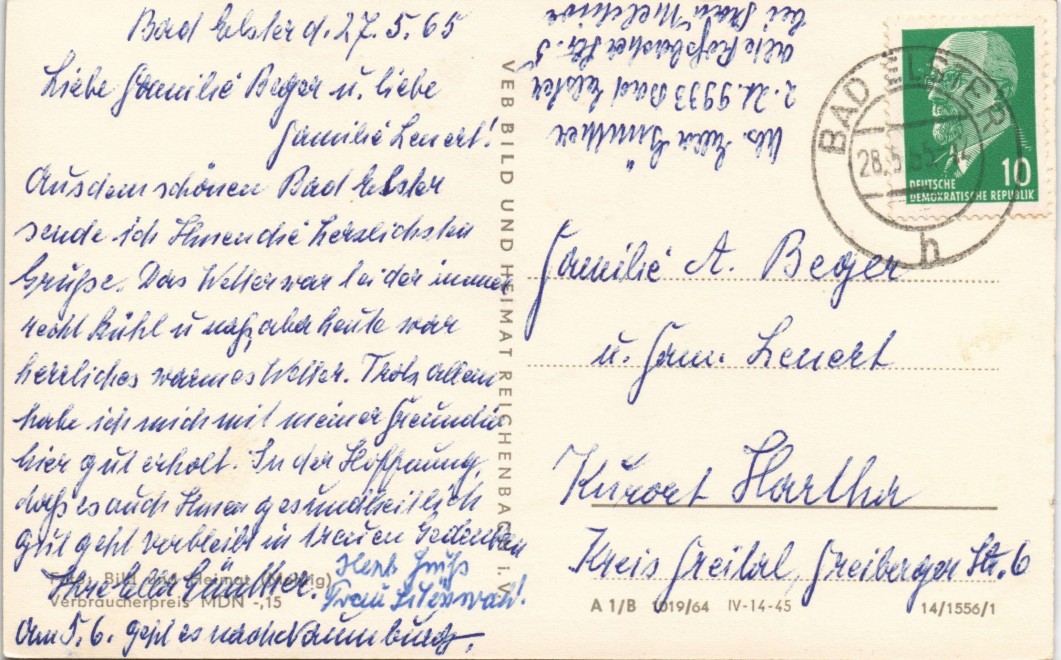 Bad Elster d. 27.5.65
Liebe Familie Beger u. liebe
Familie Lenert!
Aus dem schönen Bad Elster
sende ich Ihnen die herzlichsten
Grüße. Das Wetter war leider immer
recht kühl u naß, aber heute war
herrliches warmes Wetter. Trotz allem
habe ich mich mit meiner Freundin
hier gut erholt. In der Hoffnung,
daß es auch Ihnen gesundheitlich
gut geht verbleibt in treuen Gedenken
Ihre Ella Günther.
Herzl. Gruß
Frau
Am 5.6. geht es nach Naumburg.
Foto: Bild und Heimat
Verbraucherpreis MDN -,15
VEB BILD UND HEIMAT REICHENBACH i. V.
Abs. Ella Günther
z. Zt. 9933 Bad Elster
alte Roßbacher Str. 5
bei Frau Melchior
BAD ELSTER
28.5.65
h
10
DEUTSCHE
DEMOKRATISCHE REPUBLIK
Familie A. Beger
u. Fam. Lenert
Kurort Hartha
Kreis Freital, Freiberger Str. 6
A 1/B 1019/64 IV-14-45 14/1556/1